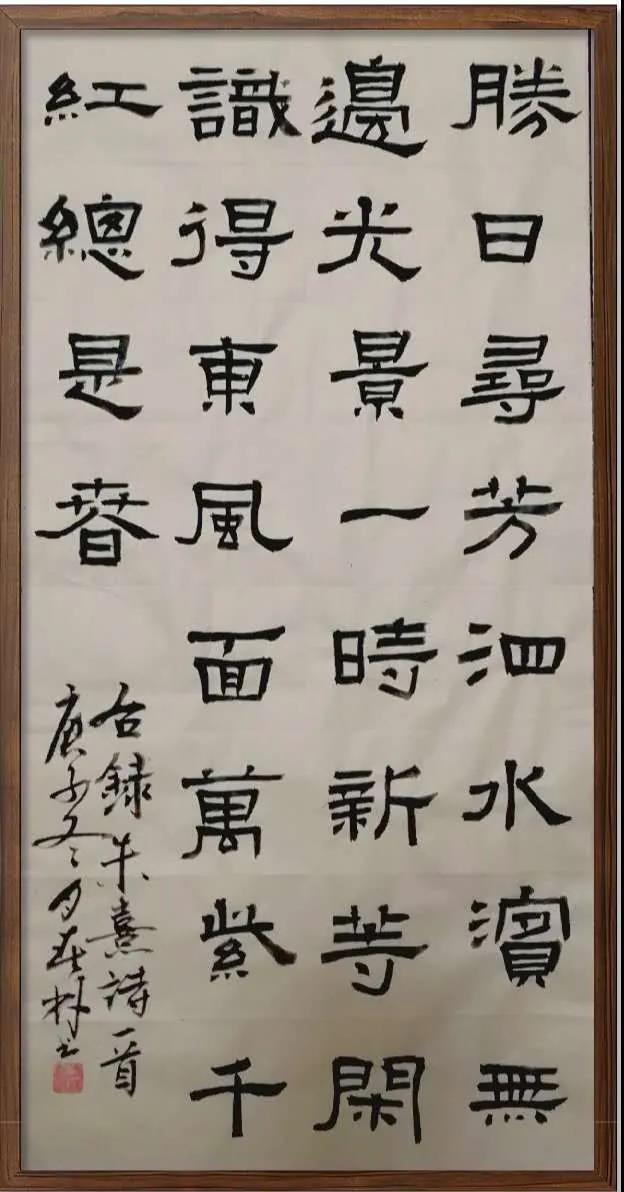 勝日尋芳泗水濱無
邊光景一時新等閑
識得東風面萬紫千
紅總是春
右録朱熹詩一首
庚子冬月春林书